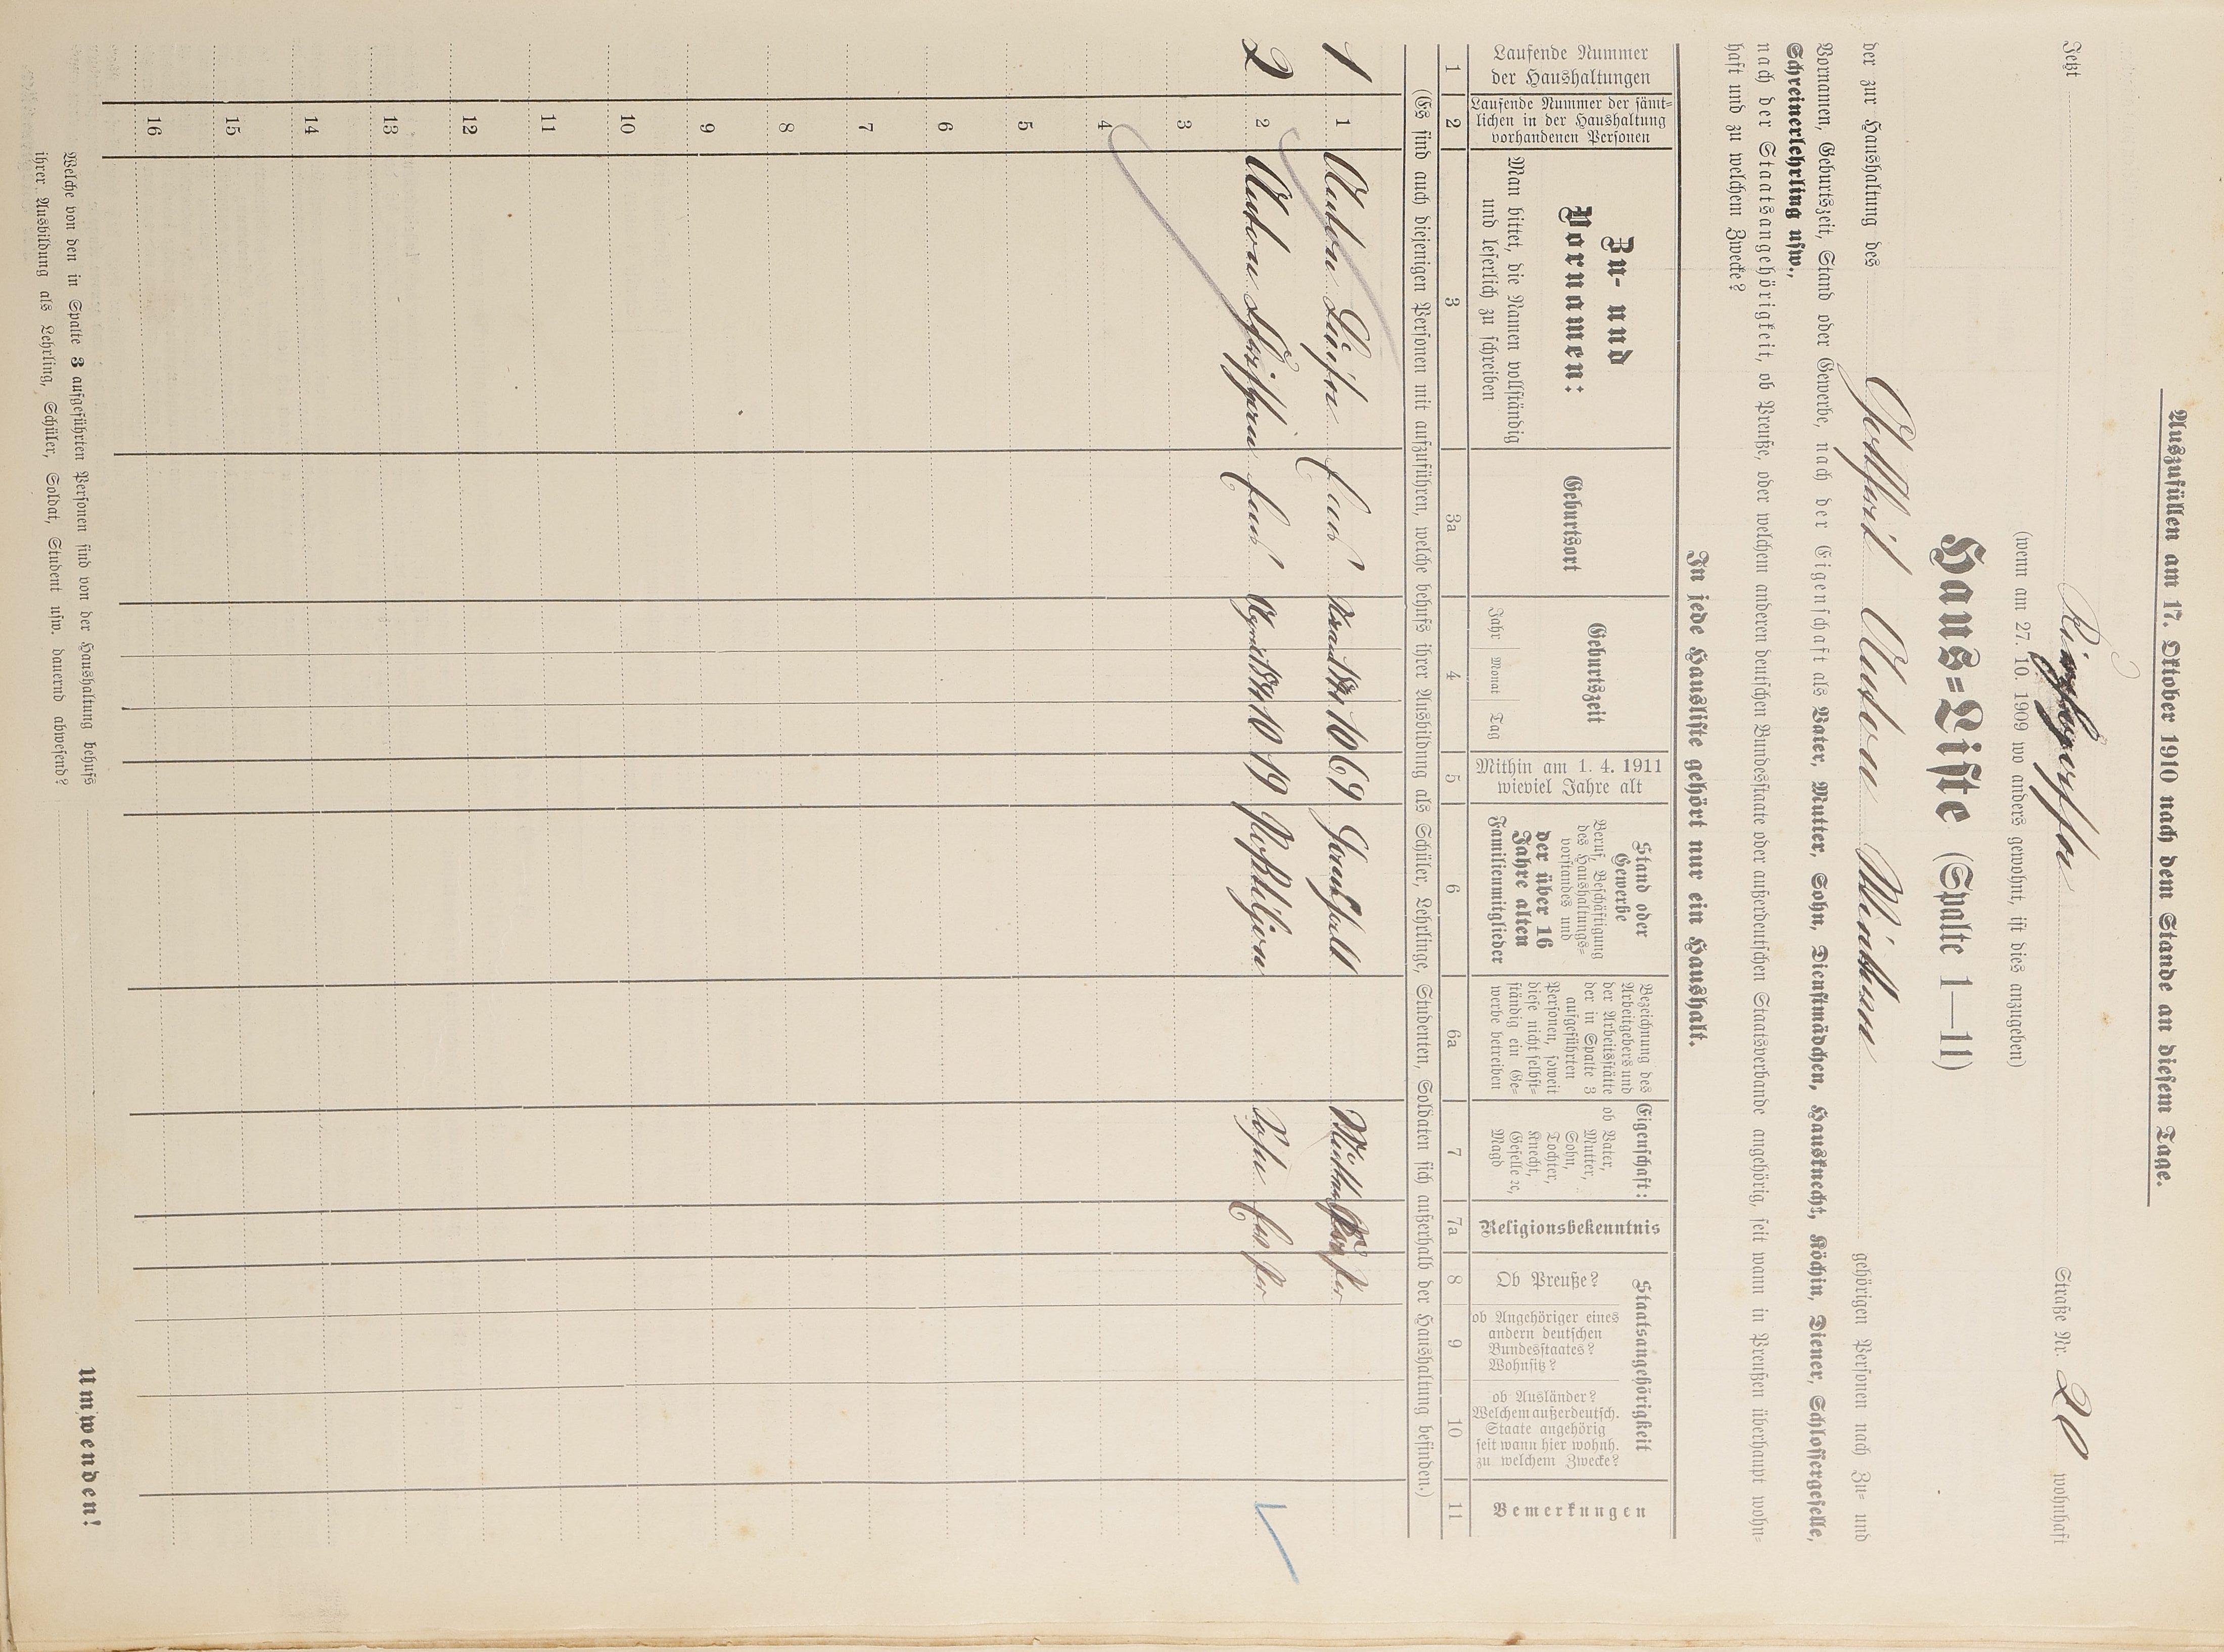 Auszufüllen am 17. Oktober 1910 nach dem Stande an diesem Tage.
Jetzt Straße Nr. 20 wohnhaft
(wenn am 27. 10. 1909 wo anders gewohnt, ist dies anzugeben)
Haus=Liste (Spalte 1—11)
der zur Haushaltung des gehörigen Personen nach Zu= und
Vornamen, Geburtszeit, Stand oder Gewerbe, nach der Eigenschaft als Vater, Mutter, Sohn, Dienstmädchen, Hausknecht, Köchin, Diener, Schlossergeselle,
Schreinerlehrling usw.,
nach der Staatsangehörigkeit, ob Preuße, oder welchem anderen deutschen Bundesstaate oder außerdeutschen Staatsverbande angehörig, seit wann in Preußen überhaupt wohn=
haft und zu welchem Zwecke?
In jede Hausliste gehört nur ein Haushalt.
Laufende Nummer
der Haushaltungen
Laufende Nummer der sämt=
lichen in der Haushaltung
vorhandenen Personen
Zu- und
Vornamen:
Man bittet, die Namen vollständig
und leserlich zu schreiben
Geburtsort
Geburtszeit
Jahr Monat Tag
Mithin am 1. 4. 1911
wieviel Jahre alt
Stand oder
Gewerbe
Beruf, Beschäftigung
des Haushaltungs=
vorstandes und
der über 16
Jahre alten
Familienmitglieder
Bezeichnung des
Arbeitgebers und
der Arbeitsstätte
der in Spalte 3
aufgeführten
Personen, soweit
diese nicht selbst=
ständig ein Ge=
werbe betreiben
Eigenschaft:
ob Vater,
Mutter,
Sohn,
Tochter,
Knecht,
Geselle ꝛc,
Magd
Religionsbekenntnis
Staatsangehörigkeit
Ob Preuße?
ob Angehöriger eines
andern deutschen
Bundesstaates?
Wohnsitz?
ob Ausländer?
Welchem außerdeutsch.
Staate angehörig
seit wann hier wohnh.
zu welchem Zwecke?
Bemerkungen
1 2 3 3a 4 5 6 6a 7 7a 8 9 10 11
(Es sind auch diejenigen Personen mit aufzuführen, welche behufs ihrer Ausbildung als Schüler, Lehrlinge, Studenten, Soldaten sich außerhalb der Haushaltung befinden.)
1 1
2 2 19 Sohn
3
4
5
6
7
8
9
10
11
12
13
14
15
16
Welche von den in Spalte 3 aufgeführten Personen sind von der Haushaltung behufs
ihrer Ausbildung als Lehrling, Schüler, Soldat, Student usw. dauernd abwesend?
Umwenden!